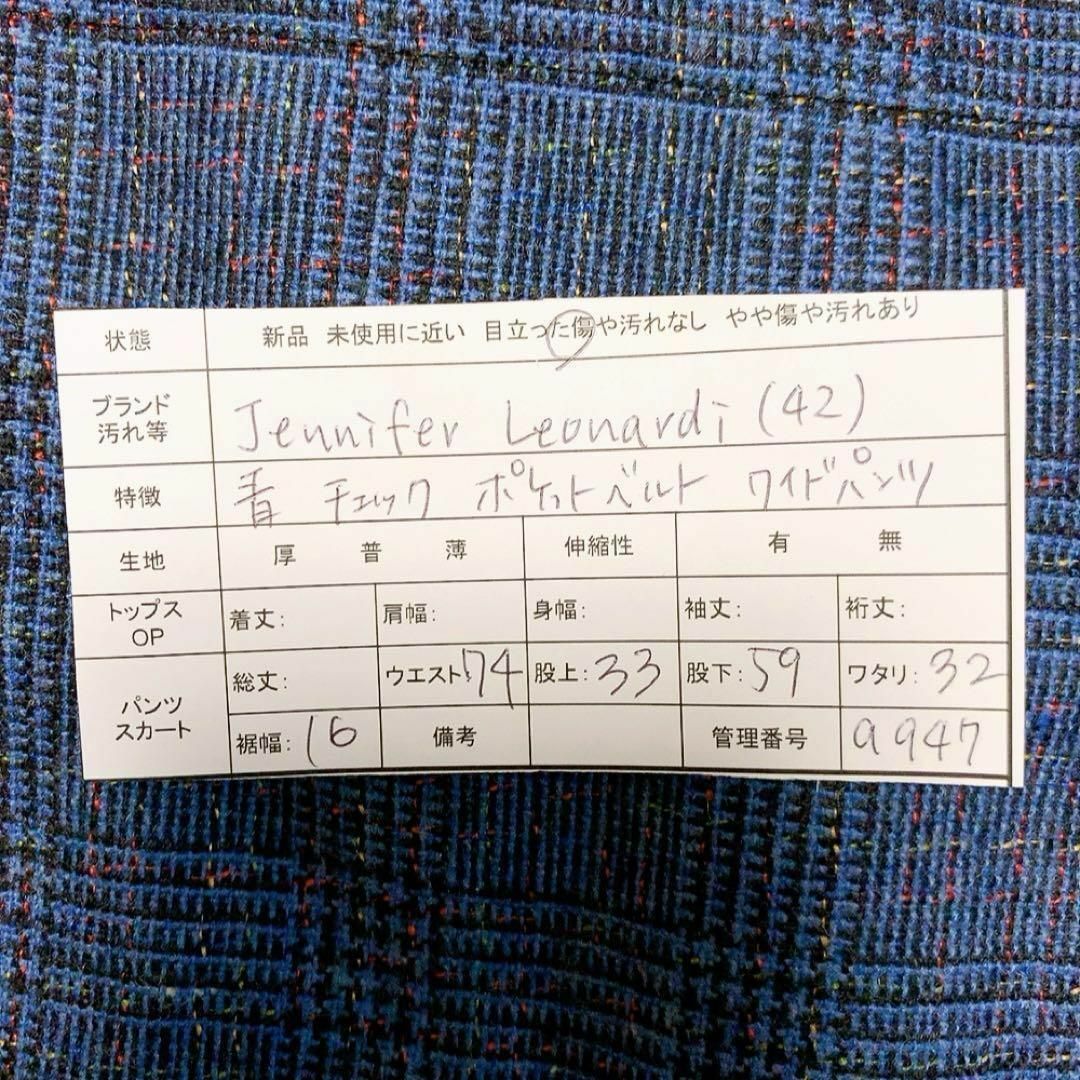 状態 新品 未使用に近い 目立った傷や汚れなし やや傷や汚れあり
ブランド
汚れ等 Jennifer Leonardi (42)
特徴 青 チェック ポケット ベルト ワイドパンツ
生地 厚 普 薄 伸縮性 有 無
トップス
OP 着丈: 肩幅: 身幅: 袖丈: 裄丈:
パンツ
スカート 総丈: ウエスト:74 股上:33 股下:59 ワタリ:32
裾幅:16 備考 管理番号 a947